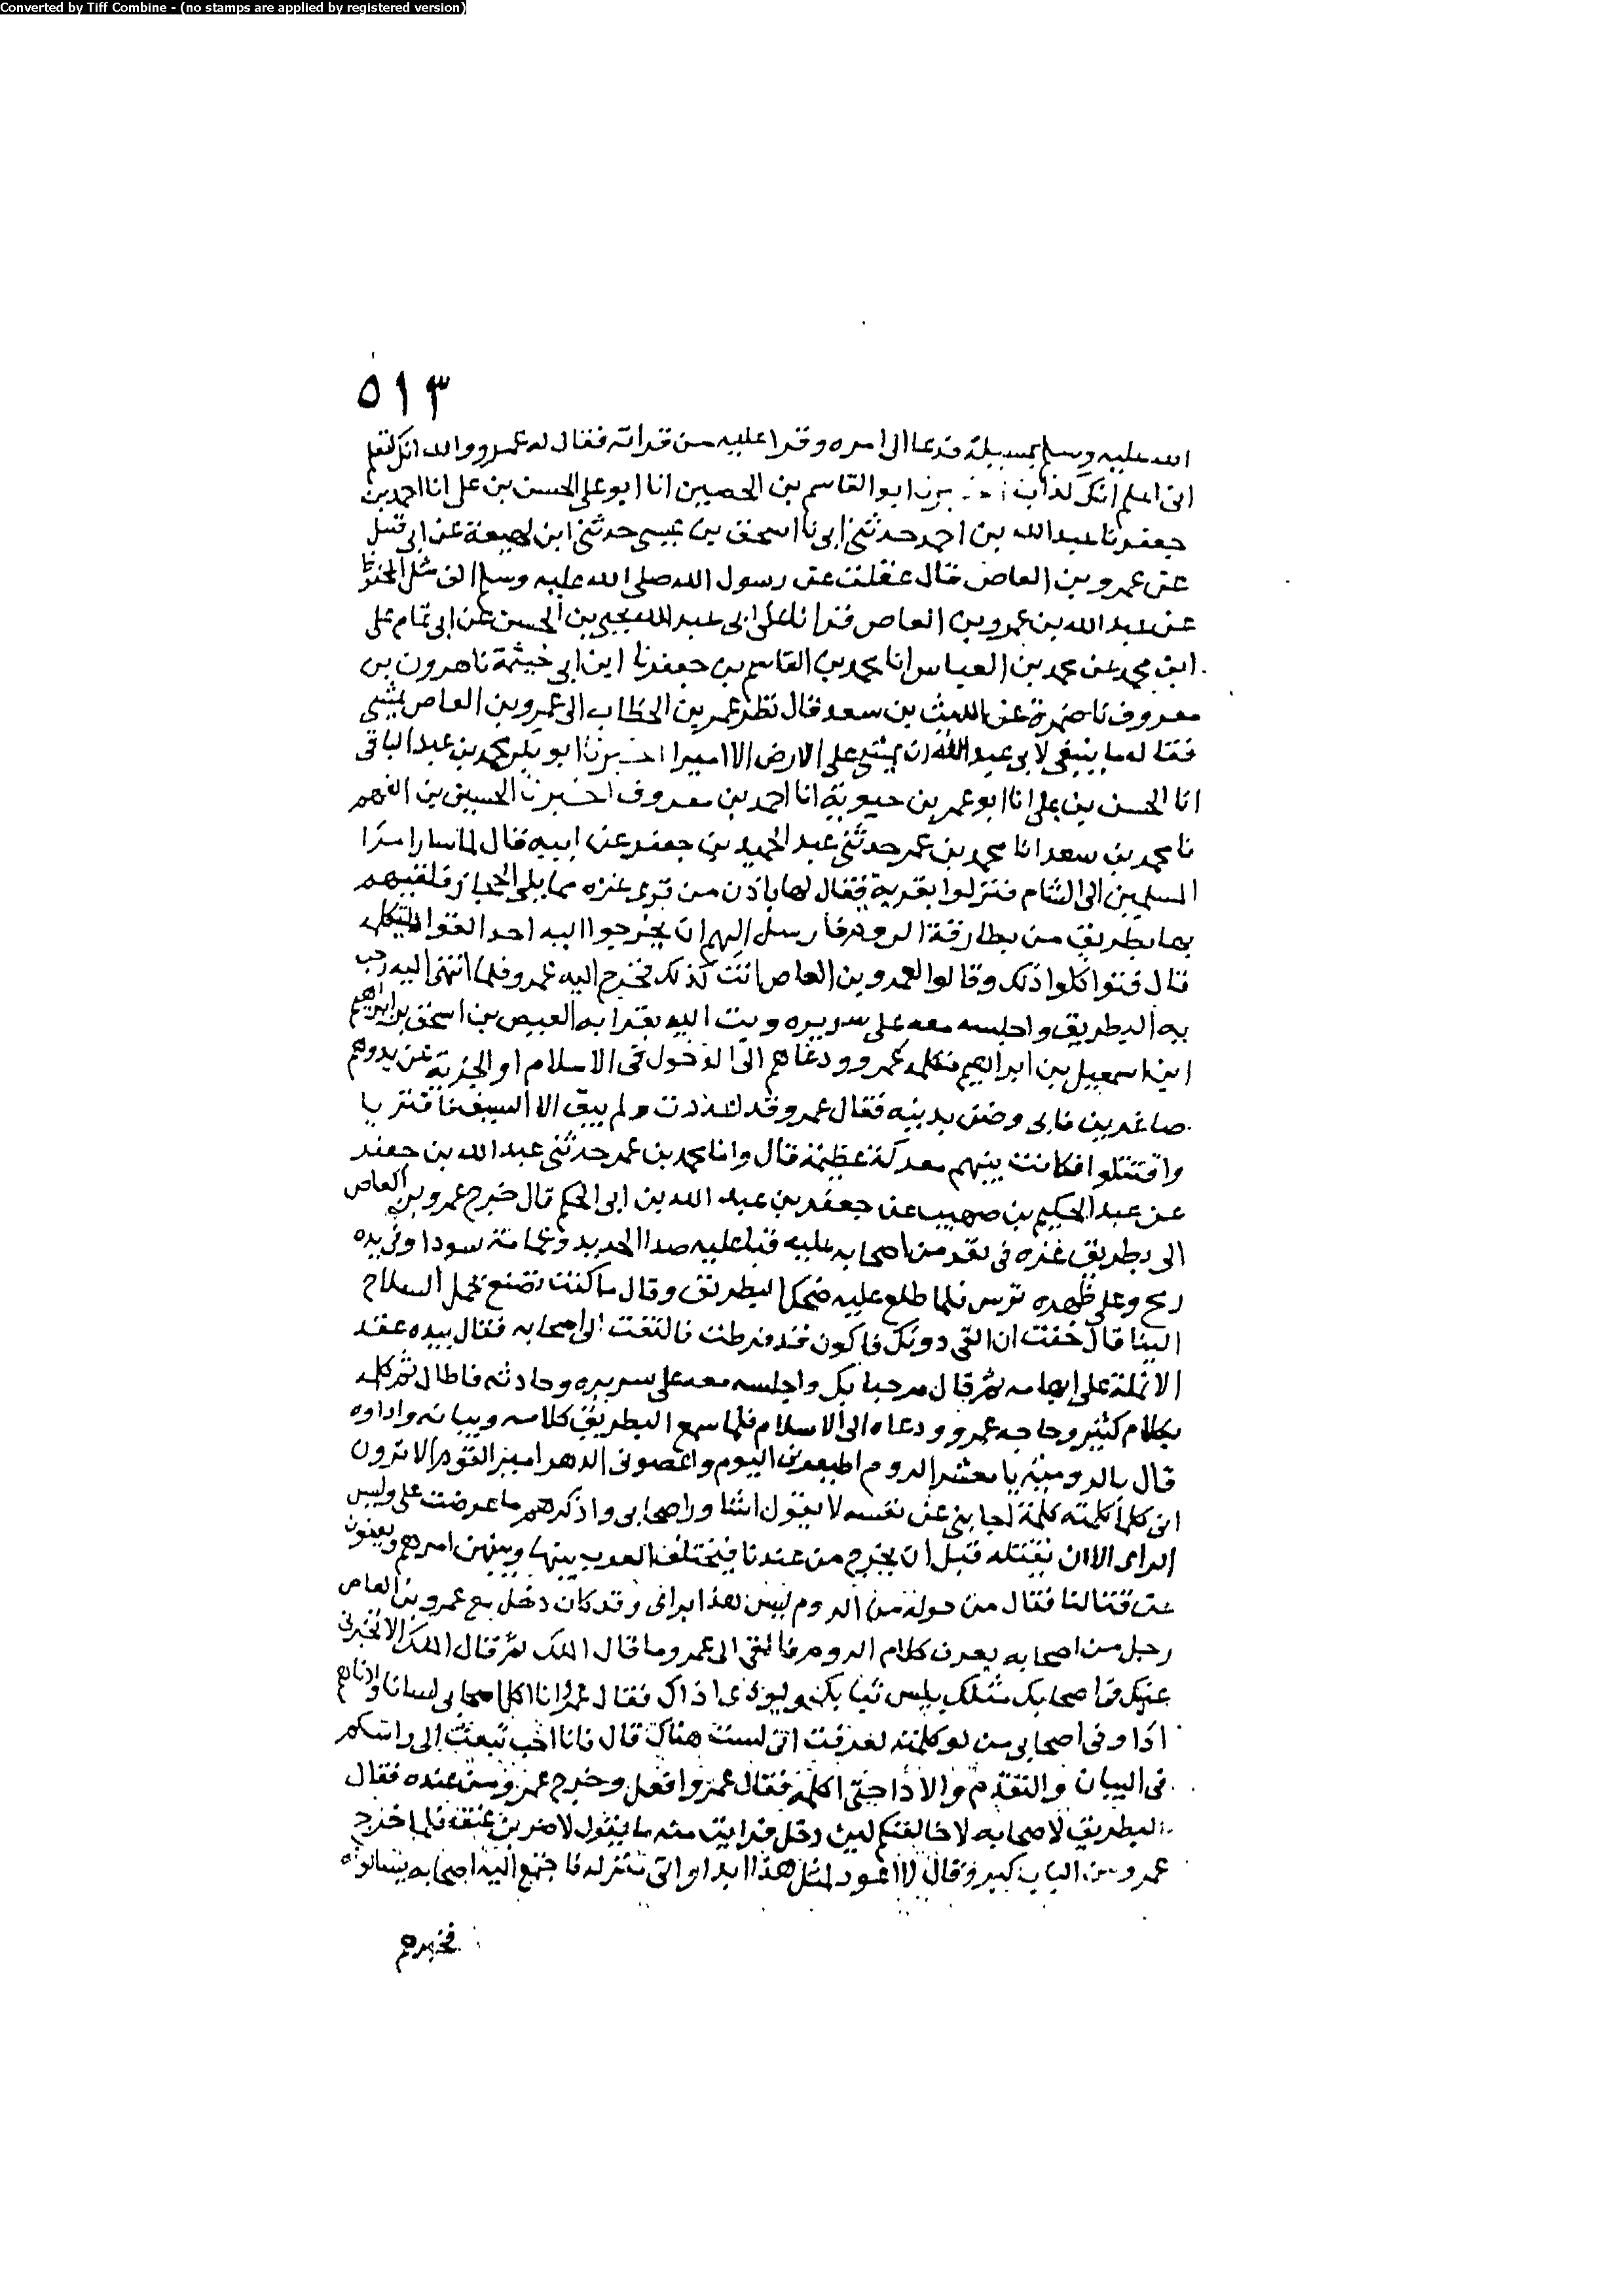 Converted by Tiff Combine - (no stamps are applied by registered version)
٥١٣
الله عليه وسلم بمسيلة فدعا الى امره وقرا عليه من قرانه فقال له عمرو والله انك لتعلم
انى اعلم انك لكذاب ابو القاسم بن الحصين انا ابو على الحسن بن على انا احمد بن
جعفر نا عبد الله بن احمد حدثنى ابى نا اسحق بن عيسى حدثنى ابن لهيعة عن ابى قبيل
عن عمرو بن العاص قال عقلت عن رسول الله صلى الله عليه وسلم الف مثل
عن عبد الله بن عمرو بن العاص قرانا على ابى عبد الله يحيى بن الحسن عن ابى تمام على
ابن محمد عن محمد بن العباس انا محمد بن القاسم بن جعفر نا ابن ابى خيثمة نا هرون بن
معروف نا ضمرة عن الليث بن سعد قال نظر عمر بن الخطاب الى عمرو بن العاص يمشى
فقال له ما ينبغى لابى عبد الله ان يمشى على الارض الا اميرا اخبرنا ابو بكر محمد بن عبد الباقى
انا الحسن بن على انا ابو عمر بن حيوية انا احمد بن معروف اخبرنا الحسين بن الفهم
نا محمد بن سعد انا محمد بن عمر حدثنى عبد الحميد بن جعفر عن ابيه قال لما سار امرا
المسلمين الى الشام فنزلوا بقرية فقال لها باذن من قرى غزه مما يلى الحجاز فلقيهم
بها بطريق من بطارقة الروم فارسل اليهم ان يخرجوا اليه احد القواد
قال فتواكلوا ذلك وقالوا لعمرو بن العاص انت كذلك فخرج اليه عمرو فلما انتهى اليه رحب
به البطريق واجلسه معه على سريره ومت اليه بقرابة العيص بن اسحق بن ابراهيم
ابن اسمعيل بن ابراهيم فكلمه عمرو ودعاهم الى الدخول فى الاسلام او الجزية عن يد وهم
صاغرين فابى وضن بدينه فقال عمرو قد اعذرت ولم يبق الا السيف فافتر يا
واقتتلوا فكانت بينهم معركة عظيمة قال وانا محمد بن عمر حدثنى عبد الله بن جعفر
عن عبد الحكيم بن صهيب عن جعفر بن عبد الله بن ابى الحكم قال خرج عمرو بن العاص
الى بطريق غزه فى نفر من اصحابه عليه قبا عليه صدا الحديد وعمامة سودا وفى يده
رمح وعلى ظهره ترس فلما طلع عليه ضحك البطريق وقال ما كنت تصنع بحمل السلاح
الينا قال خفت ان القى دونك فاكون قد فرطت فالتفت الى اصحابه فقال بيده عقد
الانملة على ابهامه ثم قال مرحبا بك واجلسه معه على سريره وحادثه فاطال ثم كلمه
بكلام كثير وحاجه عمرو ودعاه الى الاسلام فلما سمع البطريق كلامه وبيانه واداوه
قال بالرومية يا معشر الروم اطيعونى اليوم واعصونى الدهر امير القوم الا ترون
انى كلما كلمته كلمة اجابنى عن نفسه لا يقول اشاور اصحابى واذكر لهم ما عرضت على وليس
الراى الا ان نقتله قبل ان يخرج من عندنا فيختلف العرب بينها وينهى امرهم ويعفون
عن قتالنا فقال من حوله من الروم ليس هذا براى وقد كان دخل مع عمرو بن العاص
رجل من اصحابه يعرف كلام الروم فالقى الى عمرو ما قال الملك ثم قال الملك الا تخبرنى
فى اصحابك مثلك يلبس ثيابك ويودى اداك فقال عمرو انا اكل اصحابى لسانا
ادا وفى اصحابى من لو كلمته لعرفت انى لست هناك قال فانا احب تبعث الى راسكم
فى البيان والتقدم والادا حتى اكلمه فقال عمرو افعل وخرج عمرو من عنده فقال
البطريق لاصحابه لاخالفنكم لين دخل فرايت منه ما يقول لاضربن عنقه فلما خرج
عمرو من الباب كبر وقال لا اعود لمثل هذا ابدا واتى منزله فاجتمع اليه اصحابه يسالونه
فخبرهم